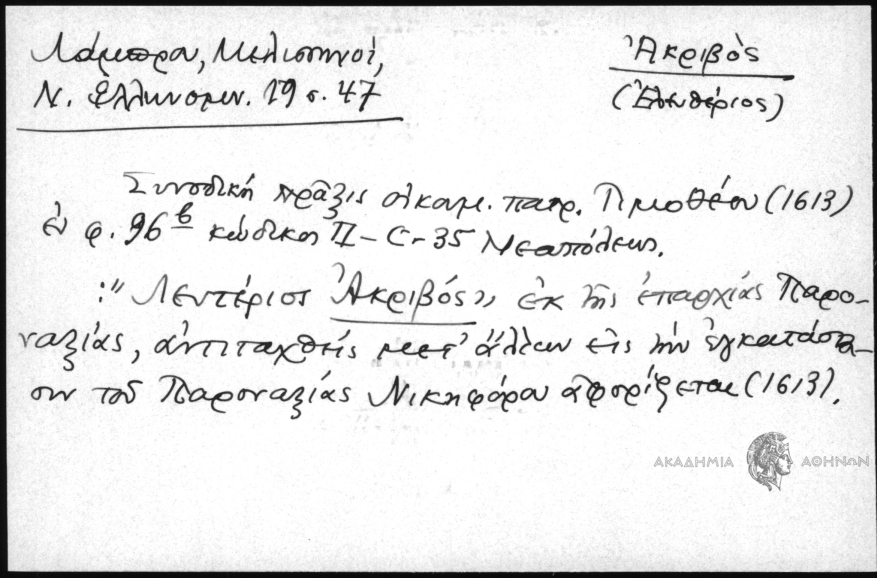 Λάμπρου, Μελισσηνοί,
Ν. Ἑλληνομν. 19 σ. 47
Ἀκριβὸς
(Ἐλευθέριος)
Συνοδική πρᾶξις οἰκουμ. πατρ. Τιμοθέου (1613)
ἐν φ. 96β κώδικος II-C-35 Νεαπόλεως.
:" Λευτέριος Ἀκριβός" ἐκ τῆς ἐπαρχίας Παρο-
ναξίας, ἀντιταχθείς μετ' ἄλλων εἰς τὴν ἐγκατάστα-
σιν τοῦ Παροναξίας Νικηφόρου ἀφορίζεται (1613).
ΑΚΑΔΗΜΙΑ ΑΘΗΝΩΝ